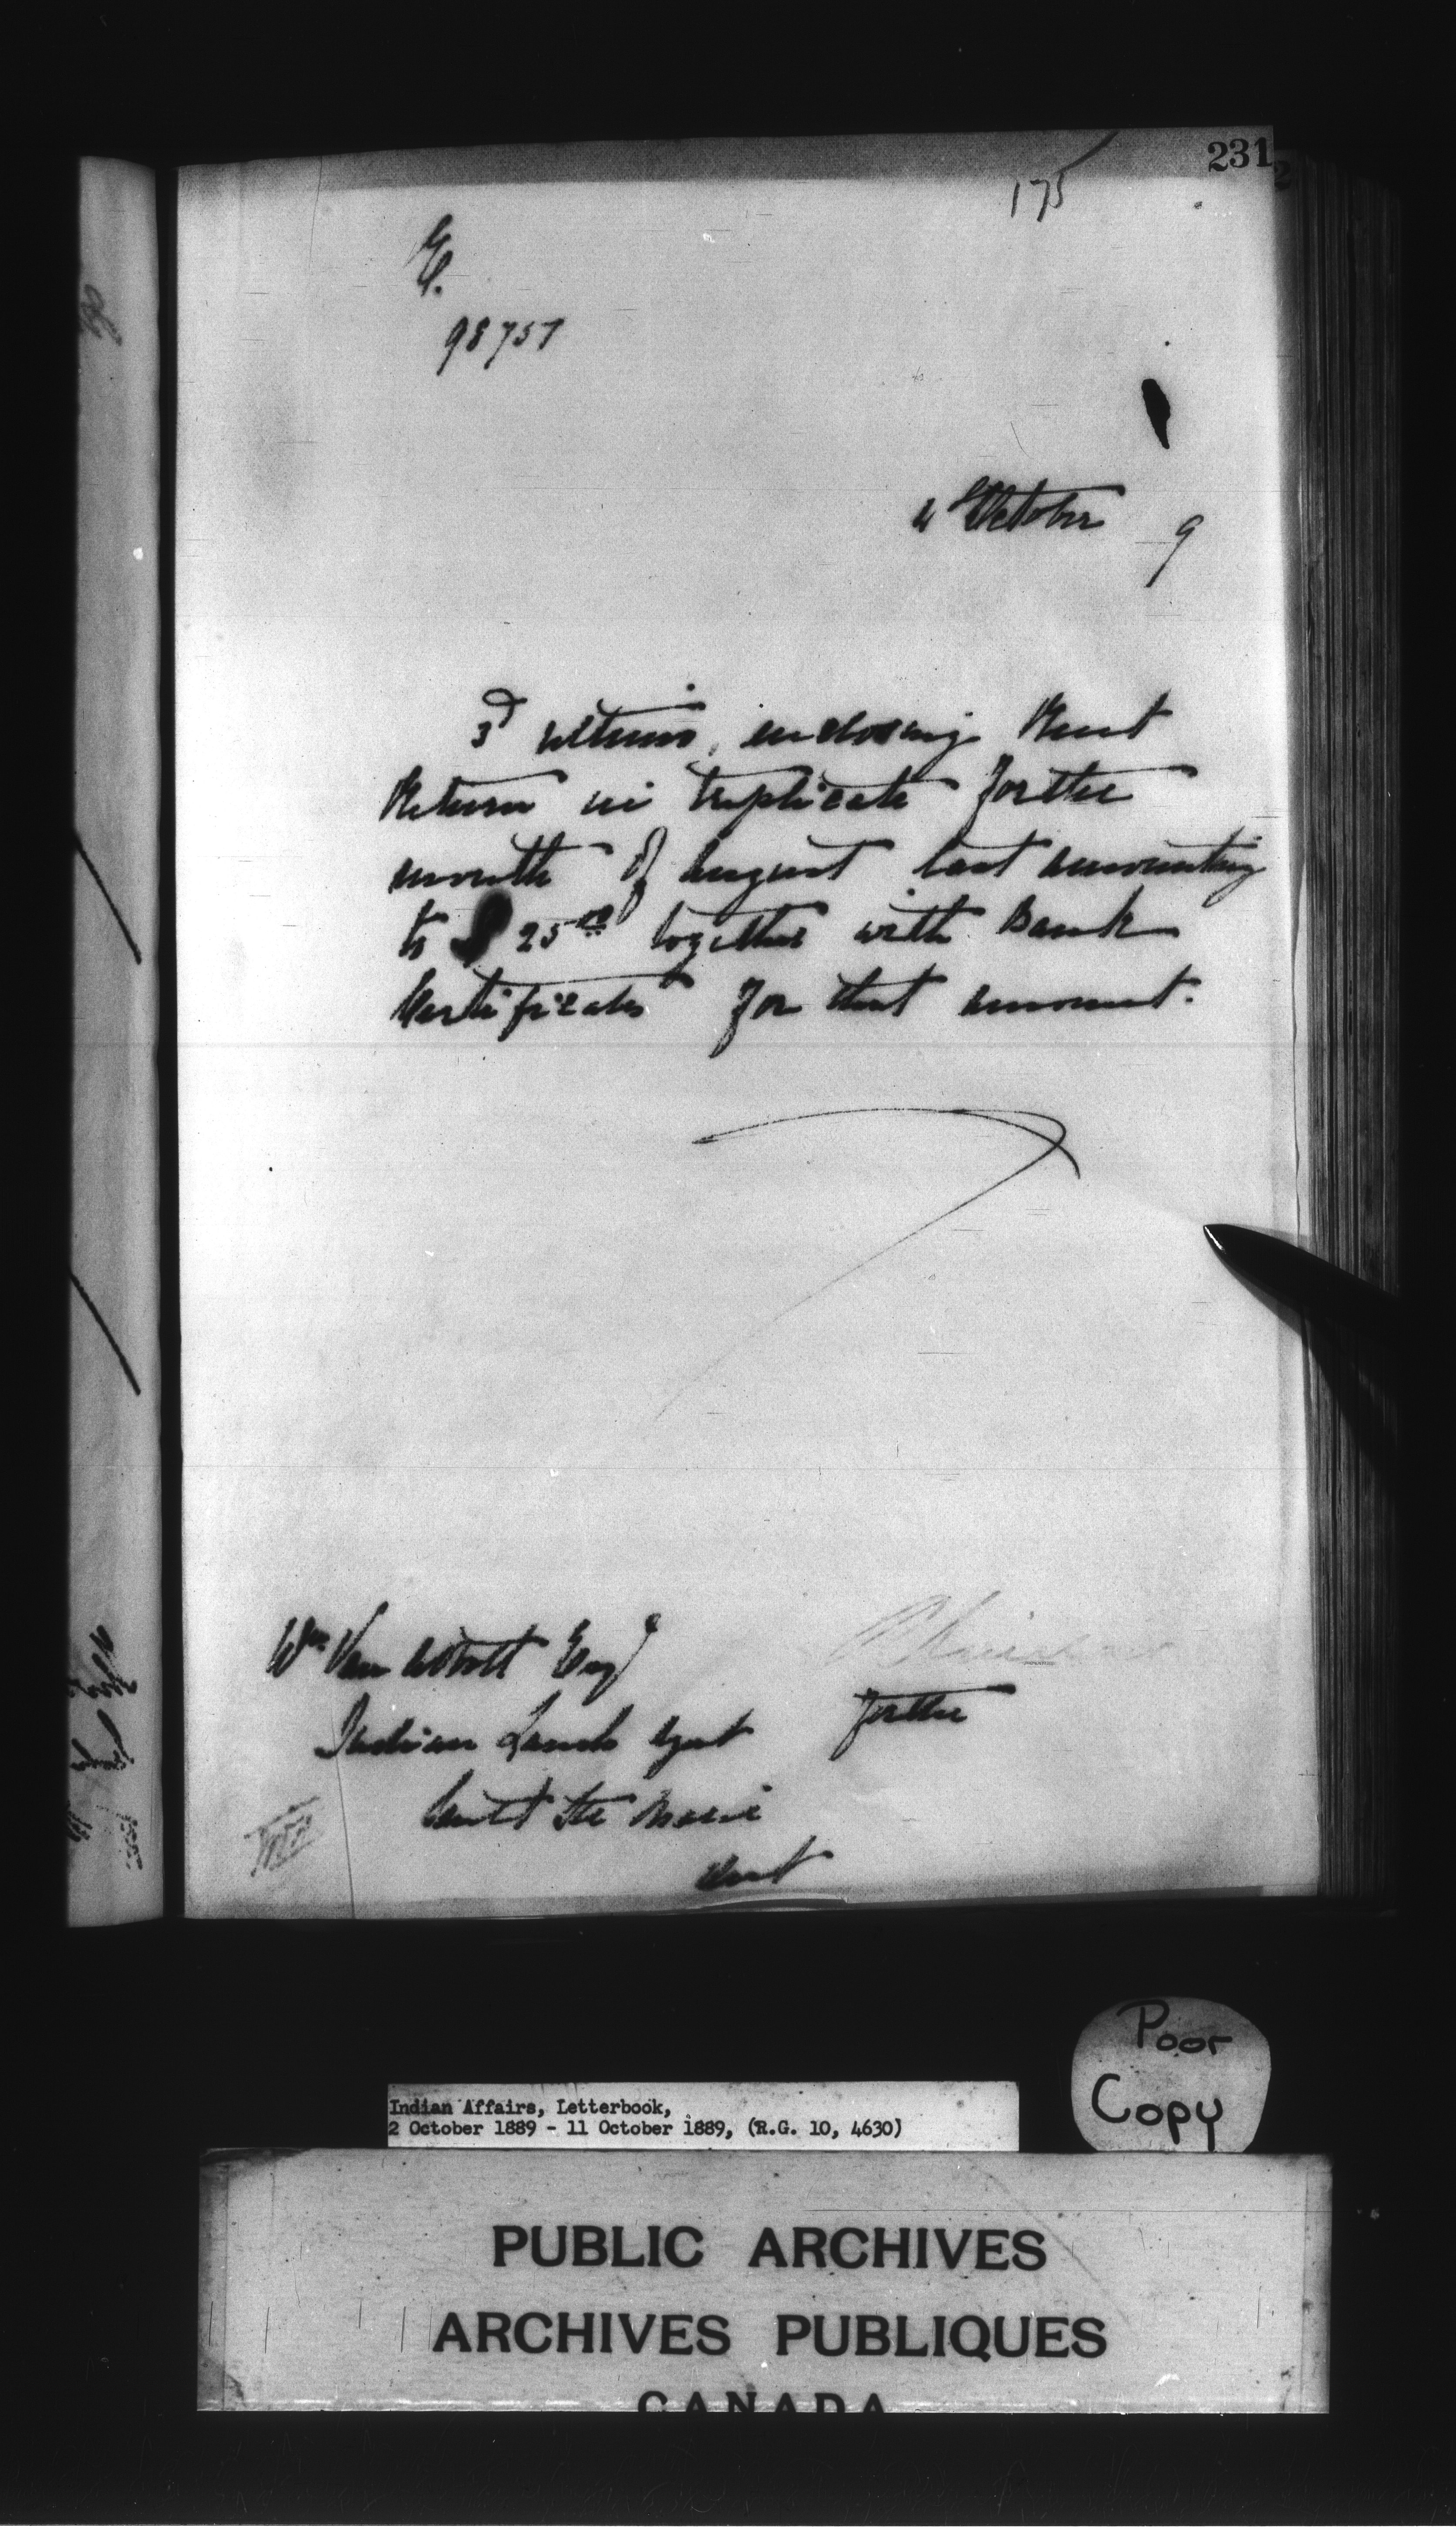 231
175
E.
98757
4 October 9
3d ultimo, enclosing Rent
Return in triplicate for the
month of August last amounting
to $25 together with Bank
Certificate for that amount.
Wm Van Abbott Esqr
for the
Indian Lands Agent
Sault Ste Marie
Ont
Poor
Copy
Indian Affairs, Letterbook,
2 October 1889 - 11 October 1889, (R.G. 10, 4630)
PUBLIC ARCHIVES
ARCHIVES PUBLIQUES
CANADA